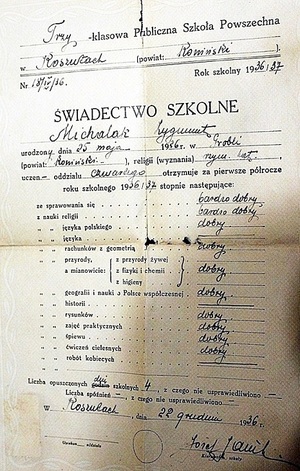 Trzy -klasowa Publiczna Szkoła Powszechna
w Koszutach (powiat: Koniński).
Nr. 18/V/36. Rok szkolny 1936/37
ŚWIADECTWO SZKOLNE
Michalak Zygmunt
urodzony dnia 25 maja 1926 r. w Grobli
(powiat: Koniński), religii (wyznania) rzym. kat.,
uczeń oddziału czwartego otrzymuje za pierwsze półrocze
roku szkolnego 1936/37 stopnie następujące:
ze sprawowania się bardzo dobry
z nauki religii bardzo dobry
„ „ języka polskiego dobry
„ „ języka
„ „ rachunków z geometrią dobry
„ „ przyrody, z przyrody żywej dobry
a mianowicie: z fizyki i chemii dobry
z higieny
„ „ geografii i nauki o Polsce współczesnej dobry
„ „ historii dobry
„ „ rysunków dobry
„ „ zajęć praktycznych dobry
„ „ śpiewu dobry
„ „ ćwiczeń cielesnych dobry
„ „ robót kobiecych
Liczba opuszczonych dni szkolnych 4, z czego nie usprawiedliwiono —
Liczba spóźnień —, z czego nie usprawiedliwiono —
w Koszutach, dnia 22 grudnia 1936 r.
Józef